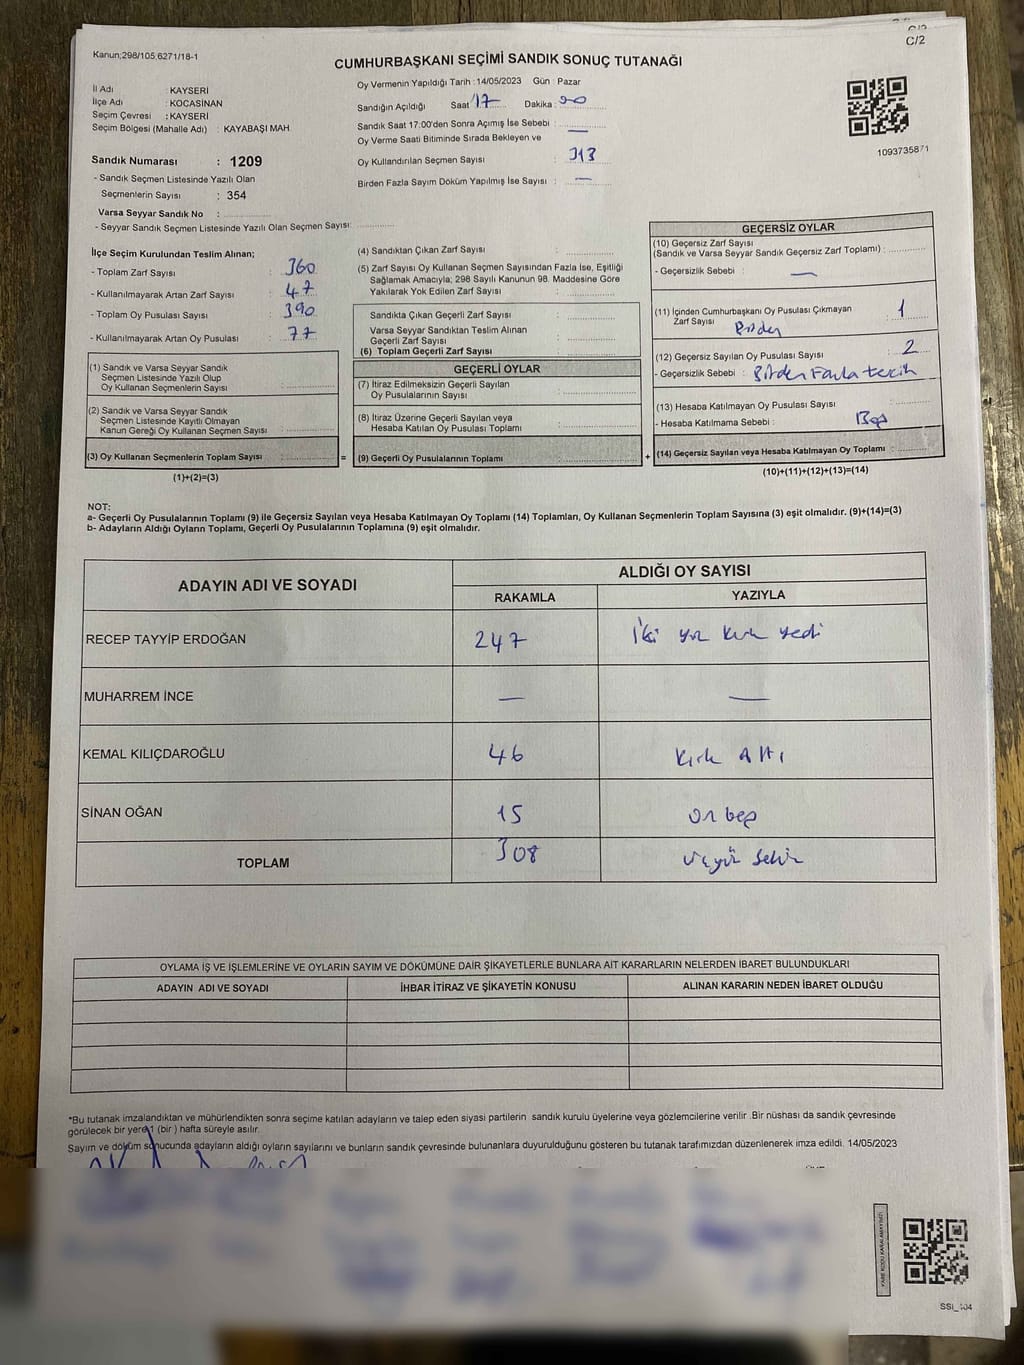 C/2
Kanun;298/105,6271/18-1
CUMHURBAŞKANI SEÇİMİ SANDIK SONUÇ TUTANAĞI
İl Adı : KAYSERİ
İlçe Adı : KOCASİNAN
Seçim Çevresi : KAYSERİ
Seçim Bölgesi (Mahalle Adı) : KAYABAŞI MAH
Sandık Numarası : 1209
- Sandık Seçmen Listesinde Yazılı Olan
Seçmenlerin Sayısı : 354
Varsa Seyyar Sandık No :
- Seyyar Sandık Seçmen Listesinde Yazılı Olan Seçmen Sayısı:
Oy Vermenin Yapıldığı Tarih : 14/05/2023 Gün : Pazar
Sandığın Açıldığı Saat 17 Dakika :
Sandık Saat 17:00'den Sonra Açımış İse Sebebi : —
Oy Verme Saati Bitiminde Sırada Bekleyen ve
Oy Kullandırılan Seçmen Sayısı : 313
Birden Fazla Sayım Döküm Yapılmış İse Sayısı : —
1093735871
İlçe Seçim Kurulundan Teslim Alınan;
- Toplam Zarf Sayısı : 360
- Kullanılmayarak Artan Zarf Sayısı : 47
- Toplam Oy Pusulası Sayısı : 390
- Kullanılmayarak Artan Oy Pusulası : 77
(1) Sandık ve Varsa Seyyar Sandık
Seçmen Listesinde Yazılı Olup
Oy Kullanan Seçmenlerin Sayısı :
(2) Sandık ve Varsa Seyyar Sandık
Seçmen Listesinde Kayıtlı Olmayan
Kanun Gereği Oy Kullanan Seçmen Sayısı :
(3) Oy Kullanan Seçmenlerin Toplam Sayısı :
(1)+(2)=(3)
(4) Sandıktan Çıkan Zarf Sayısı :
(5) Zarf Sayısı Oy Kullanan Seçmen Sayısından Fazla İse, Eşitliği
Sağlamak Amacıyla; 298 Sayılı Kanunun 98. Maddesine Göre
Yakılarak Yok Edilen Zarf Sayısı :
Sandıkta Çıkan Geçerli Zarf Sayısı :
Varsa Seyyar Sandıktan Teslim Alınan
Geçerli Zarf Sayısı :
(6) Toplam Geçerli Zarf Sayısı :
GEÇERLİ OYLAR
(7) İtiraz Edilmeksizin Geçerli Sayılan
Oy Pusulalarının Sayısı :
(8) İtiraz Üzerine Geçerli Sayılan veya
Hesaba Katılan Oy Pusulası Toplamı :
= (9) Geçerli Oy Pusulalarının Toplamı :
GEÇERSİZ OYLAR
(10) Geçersiz Zarf Sayısı
(Sandık ve Varsa Seyyar Sandık Geçersiz Zarf Toplamı) :
- Geçersizlik Sebebi : —
(11) İçinden Cumhurbaşkanı Oy Pusulası Çıkmayan
Zarf Sayısı : 1
(12) Geçersiz Sayılan Oy Pusulası Sayısı : 2
- Geçersizlik Sebebi : Birden Fazla tercih
(13) Hesaba Katılmayan Oy Pusulası Sayısı :
- Hesaba Katılmama Sebebi : Boş
+ (14) Geçersiz Sayılan veya Hesaba Katılmayan Oy Toplamı :
(10)+(11)+(12)+(13)=(14)
NOT:
a- Geçerli Oy Pusulalarının Toplamı (9) ile Geçersiz Sayılan veya Hesaba Katılmayan Oy Toplamı (14) Toplamları, Oy Kullanan Seçmenlerin Toplam Sayısına (3) eşit olmalıdır. (9)+(14)=(3)
b- Adayların Aldığı Oyların Toplamı, Geçerli Oy Pusulalarının Toplamına (9) eşit olmalıdır.
ADAYIN ADI VE SOYADI
ALDIĞI OY SAYISI
RAKAMLA YAZIYLA
RECEP TAYYİP ERDOĞAN 247 İki yüz kırk yedi
MUHARREM İNCE — —
KEMAL KILIÇDAROĞLU 46 Kırk Altı
SİNAN OĞAN 15 on beş
TOPLAM 308 üçyüz sekiz
OYLAMA İŞ VE İŞLEMLERİNE VE OYLARIN SAYIM VE DÖKÜMÜNE DAİR ŞİKAYETLERLE BUNLARA AİT KARARLARIN NELERDEN İBARET BULUNDUKLARI
ADAYIN ADI VE SOYADI İHBAR İTİRAZ VE ŞİKAYETİN KONUSU ALINAN KARARIN NEDEN İBARET OLDUĞU
*Bu tutanak imzalandıktan ve mühürlendikten sonra seçime katılan adayların ve talep eden siyasi partilerin sandık kurulu üyelerine veya gözlemcilerine verilir .Bir nüshası da sandık çevresinde
görülecek bir yere 1 (bir ) hafta süreyle asılır.
Sayım ve döküm sonucunda adayların aldığı oyların sayılarını ve bunların sandık çevresinde bulunanlara duyurulduğunu gösteren bu tutanak tarafımızdan düzenlenerek imza edildi. 14/05/2023